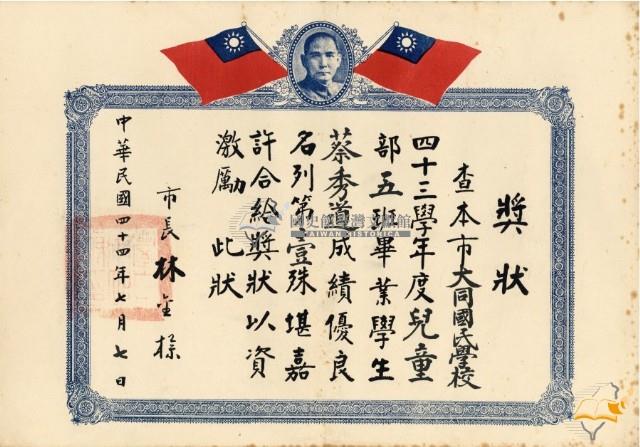 獎狀
查本市大同國民學校
四十三學年度兒童
部五班畢業學生
蔡秀道成績優良
名列第壹殊堪嘉
許合給獎狀以資
激勵 此狀
市長 林金標
中華民國四十四年七月七日
國史館臺灣文獻館
TAIWAN HISTORICA